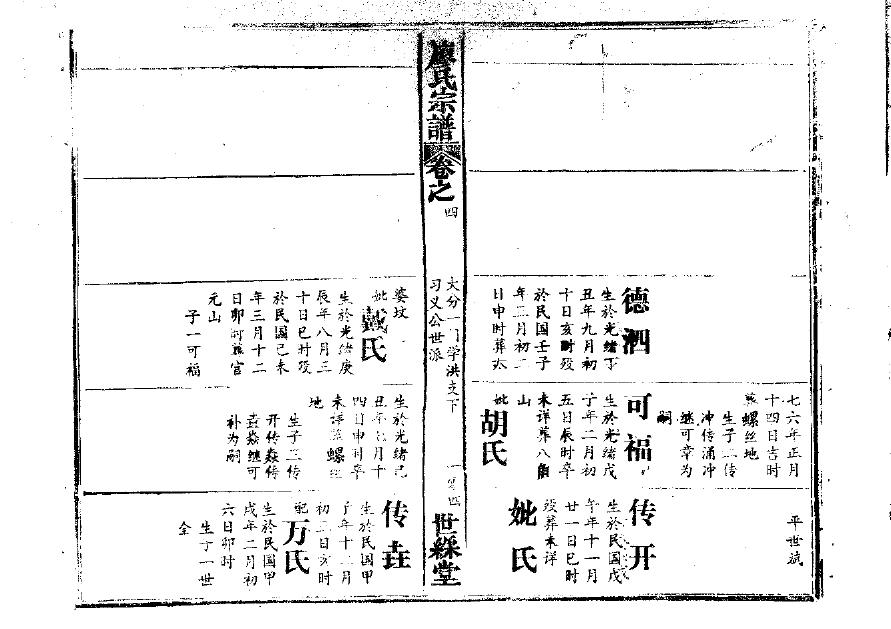 七六年正月
十四日吉时
葬螺丝地
生子二传
冲传涌冲
继可章为
嗣
平世斌
德泗
生於光绪丁
丑年九月初
十日亥时殁
於民国壬子
年三月初二
日申时葬大
婆坟
妣
戴氏
生於光绪庚
辰年八月三
十日巳时殁
於民国己未
年三月十二
日卯时葬官
元山
子一可福
可福
生於光绪戊
子年二月初
五日辰时卒
未详葬八角
山
妣
胡氏
生於光绪己
丑年七月十
四日申时卒
未详葬螺丝
地
生子三传
开传焱传
垚焱继可
补为嗣
传开
生於民国戊
午年十一月
廿一日巳时
殁葬未详
妣氏
传垚
生於民国甲
子年十二月
初三日亥时
配
万氏
生於民国甲
戌年二月初
六日卯时
生子一世
全
廖氏宗譜
卷之四
大分一门学洪支下
习义公世派
世綵堂